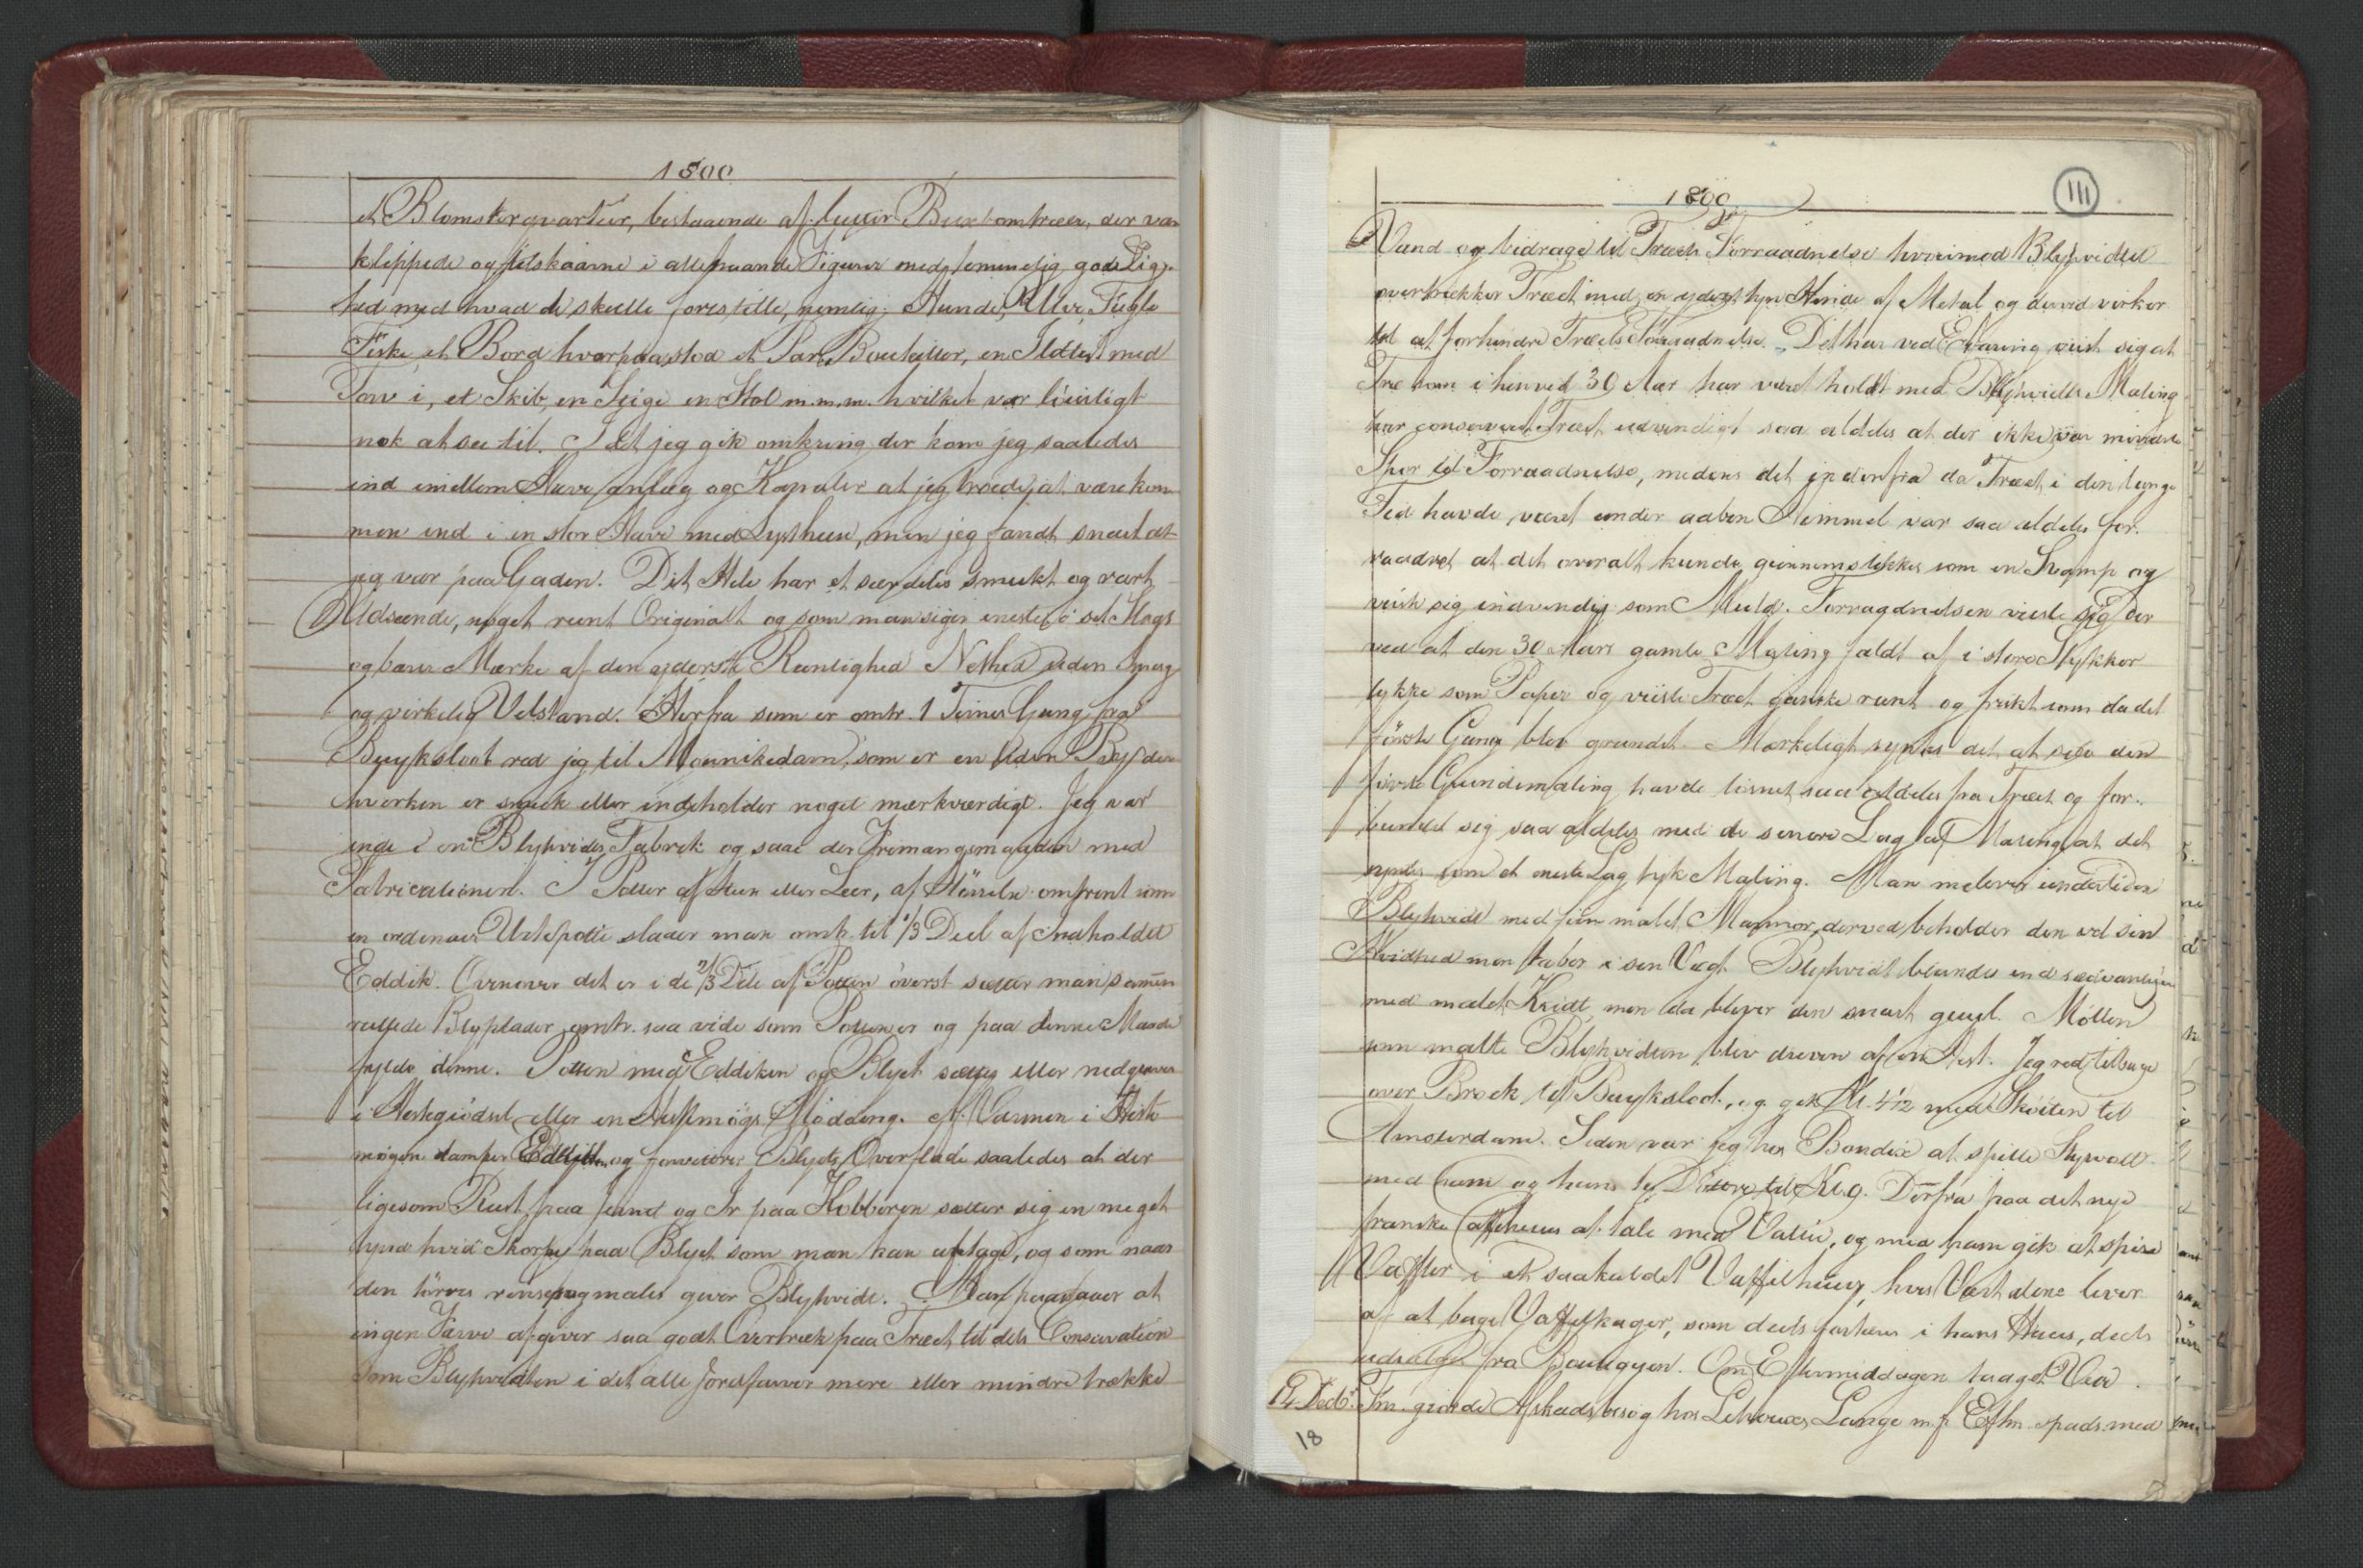 1800
et Blomsterqvarteer, bestaaende af lutter Buxbomtræer, der var
klippede og tilskaarne i allehaande Figurer med temmelig gode Lig-
hed med hvad de skulle forestille, nemlig; Hunde, Ulve, Fugle
Fiske, et Bord hvorpaa stod et Par Bouteiller, en Ildtest med
Törv i, et Skib, en Stige en Stol m.m.m. hvilket var liurligt
nok at see til. I det jeg gik omkring der kom jeg saaledes
ind imellem Have anlæg og Kanaler at jeg troede at være kom
men ind i en stor Have med Lysthuse, men jeg fandt snart at
jeg var paa Gaden. Det Hele har et særdeles smukt og rart
Udseende, noget reent Originalt og som man siger eneste i sit Slags
og bærer Mærke af den yderste Reenlighed Nethed uden Smag
og virkelig Velstand. Herfra som er omtr. 1 Times Gang fra
Buyksloot red jeg til Monnikedam, som er en liden Bÿ der
hverken er smuk eller indeholder noget mærkværdigt. Jeg var
inde i en Blyhvidts Fabrik og saae der Fremangsmaaden med
Fabricationen. I Potter af Steen eller Leer, af Störrelse omtrent som
en ordinair Urtepotte slaaer man omtr. til 1/3 Deel af Indholdet
Eddik. Ovenover det er i de 2/3 Dele af Potten överst sætter man sammen
rullede Blyplader omtr. saa vide som Potten er og paa denne Maade
fyldes denne. Potten med Eddiken og Blyet sættes eller nedgraves
i Hestegiödsel eller en Hestmögs Mödding. Af Varmen i Heste
mögen damper Eddiken og forvitrer Blyets Overflade saaledes at der
ligesom Rust paa Jernet og Ir paa Kobberen sætter sig en meget
tynd hvid Skorpe paa Blyet som man kan aftage, og som naar
den törres renses og males giver Blyhvidt. Man paastaaer at
ingen Farve afgiver saa godt Overtræk paa Træet til dets Conservation
som Blyhvidten i det alle Jordfarver mere eller mindre trække
1800.
111
Vand og bidrage til Træets Forraadnelse hvorimod Blyhvidtet
overtrækker Træet med en yderst tynd Hinde af Metal og derved virker
til at forhindre Træets Forraadnelse. Det har ved Erfaring viist sig at
Træ som i henved 30 Aar har været holdt med Blyhvidts Maling
har conserveret Træet udvendigt saa aldeles at der ikke var mindste
Spor til Forraadnelse, medens det indenfra da Træet i den lange
Tid havde været under aaben Himmel var saa aldeles for-
raadnet at det overalt kunde giennemstikkes som en Svamp og
viiste sig indvendig som Muld. Forraadnelsen viiste sig der
ved at den 30 Aars gamle Maling faldt af i store Stykker
tykke som Papir og viiste Træet ganske reent og friskt som da det
förste Gang blev grundet. Mærkeligt syntes det at see den
förste Grundemaling havde lösnet saa aldeles fra Træet og for-
bundet sig saa aldeles med de senere Lag af Maling at det
syntes som et eneste Lag tyk Maling. Man melerer undertiden
Blyhvidt med fiin malet Marmor, derved beholder den vel sin
Hvidhed men taber i sin Vægt. Blyhvidt blandes end sædvanligen
med malet Kridt, men da bliver den snart guul. Möllen
som malte Blyhvidten blev dreven af en Hest. Jeg red tilbage
over Broek til Buyksloot, og gik Kl. 4 1/2 med Skøiten til
Amsterdam. Siden var jeg hos Bondix at spille
med ham og hans to Döttre til Kl. 9. Derfra paa det nye
franske Caffehuus at tale med Vallée, og med ham gik at spise
Vafler i et saakaldet Vaffelhuus, hvis Vært alene lever
af at bage Vaffelkager, som deels fortæres i hans Huus, deels
udsælges fra Om Eftermiddagen taaget Veir.
14 Decbr. Fm. giorde Afskedsbesøg hos Lange m.fl. Efm. spads. med
18